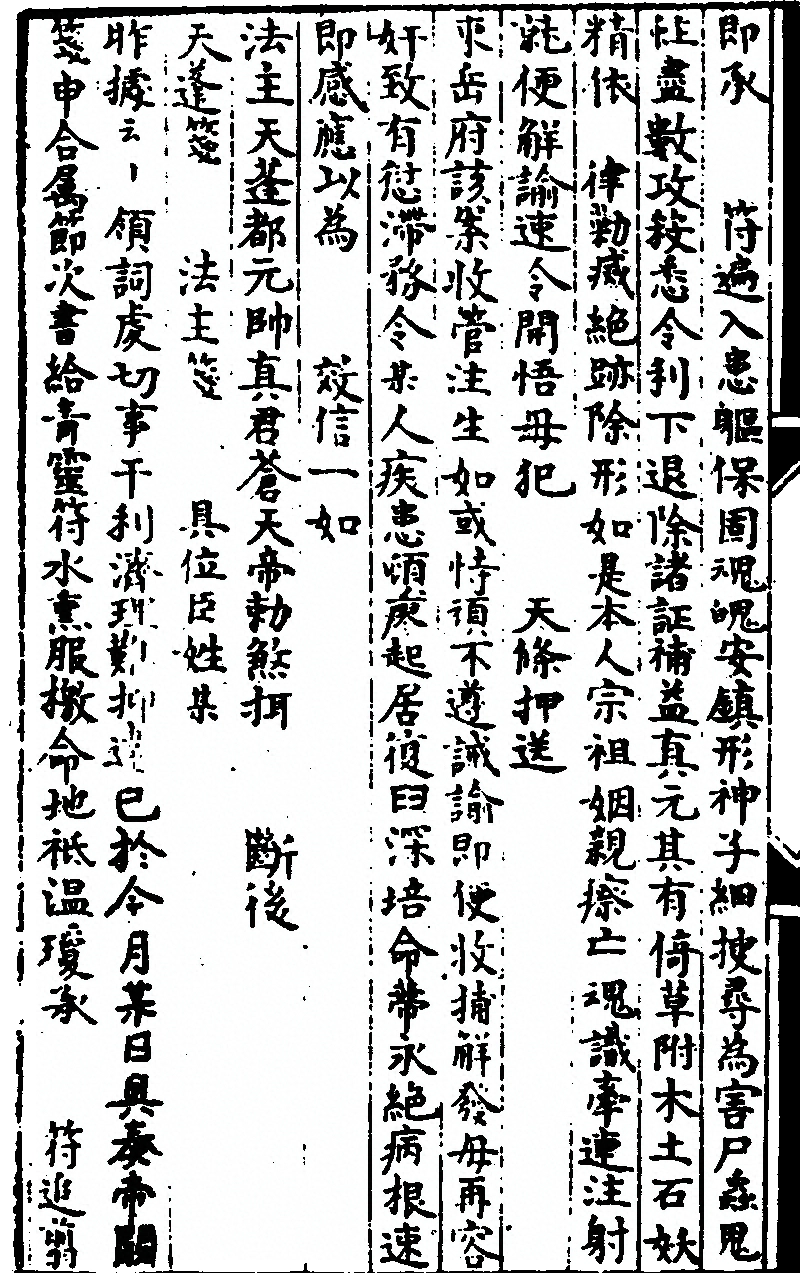 即承　符遍入患軀保固魂魄安鎮形神子細搜尋為害尸蟲鬼
性盡數攻殺悉令利下退除諸証補益真元其有倚草附木土石妖
精依　律勅威絕跡除形如是本人宗祖姻親瘵亡魂識牽連注射
耗便解諭速令開悟毋犯　天條押送
東岳府該案收管注生如或恃頑不遵誡諭即便收捕解發毋再容
奸致有愆滯務令某人疾患頓痊起居復旧深培命蒂永絕病根速
即感應以為　效信一如
法主天蓬都元帥真君蒼天帝勅煞押　斷後
天蓬箋　法主箋　具位臣姓某
昨據云々領詞虔切事干利濟理難抑違已於今月某日具奏帝闕
箋申合属節次書給青靈符水熏服檄命地祇温瓊承　符追翦